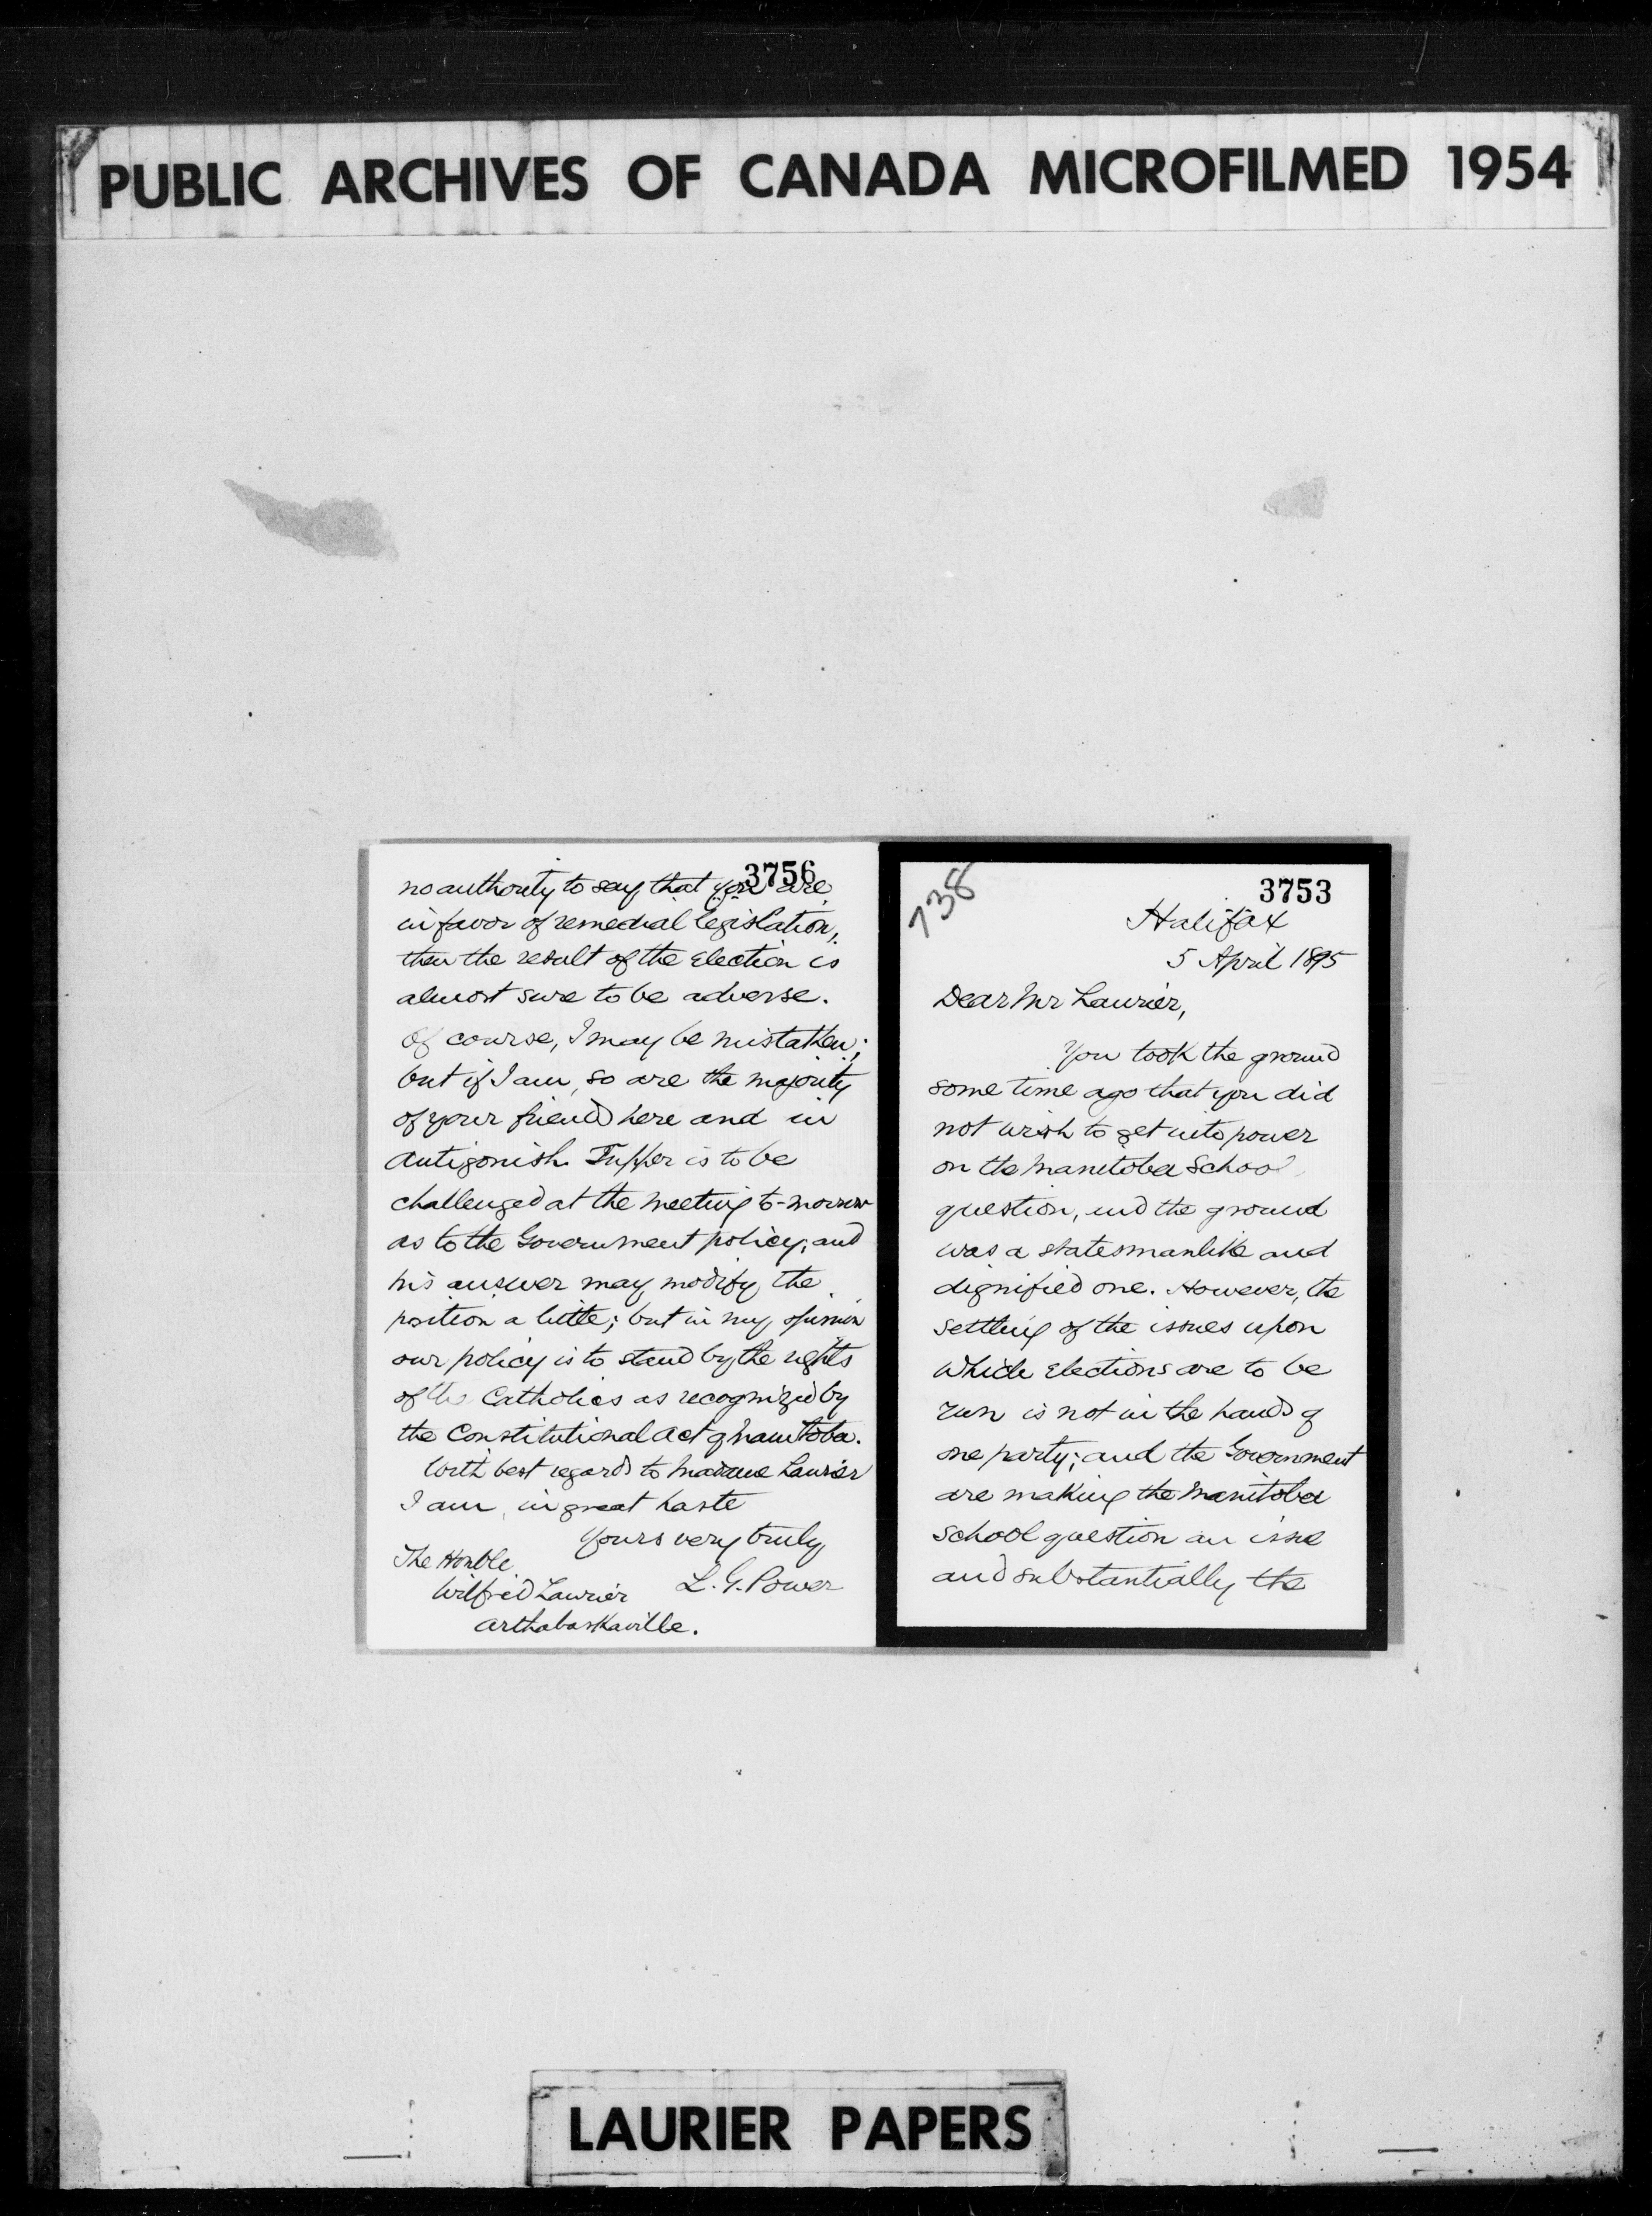 PUBLIC ARCHIVES OF CANADA MICROFILMED 1954
3756
no authority to say that you are
in favor of remedial legislation,
then the result of the Election is
almost sure to be adverse.
Of course, I may be mistaken;
but if I am, so are the majority
of your friends here and in
Antigonish. Tupper is to be
challenged at the meeting to-morrow
as to the Government policy; and
his answer may modify the
position a little; but in my opinion
our policy is to stand by the rights
of the Catholics as recognized by
the Constitutional Act of Manitoba.
With best regards to Madame Laurier
I am, in great haste
Yours very truly
L. G. Power
The Honble
Wilfrid Laurier
Arthabaskaville.
738
3753
Halifax
5 April 1895
Dear Mr Laurier,
You took the ground
some time ago that you did
not wish to get into power
on the Manitoba School
question, and the ground
was a statesmanlike and
dignified one. However, the
settling of the issues upon
which Elections are to be
run is not in the hands of
one party; and the Government
are making the Manitoba
School question an issue
and substantially the
LAURIER PAPERS